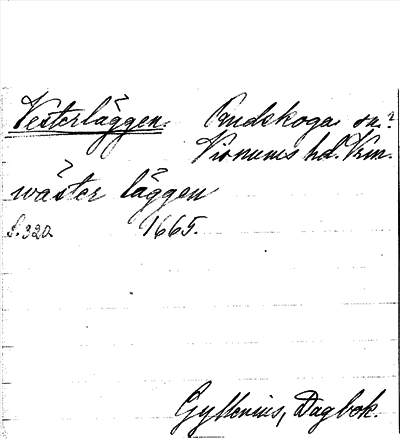 Vesterläggen. Rudskoga sn.?
Visnums hd. Vrm.
wäster läggen
S. 320 1665.
Gyllenius, Dagbok.